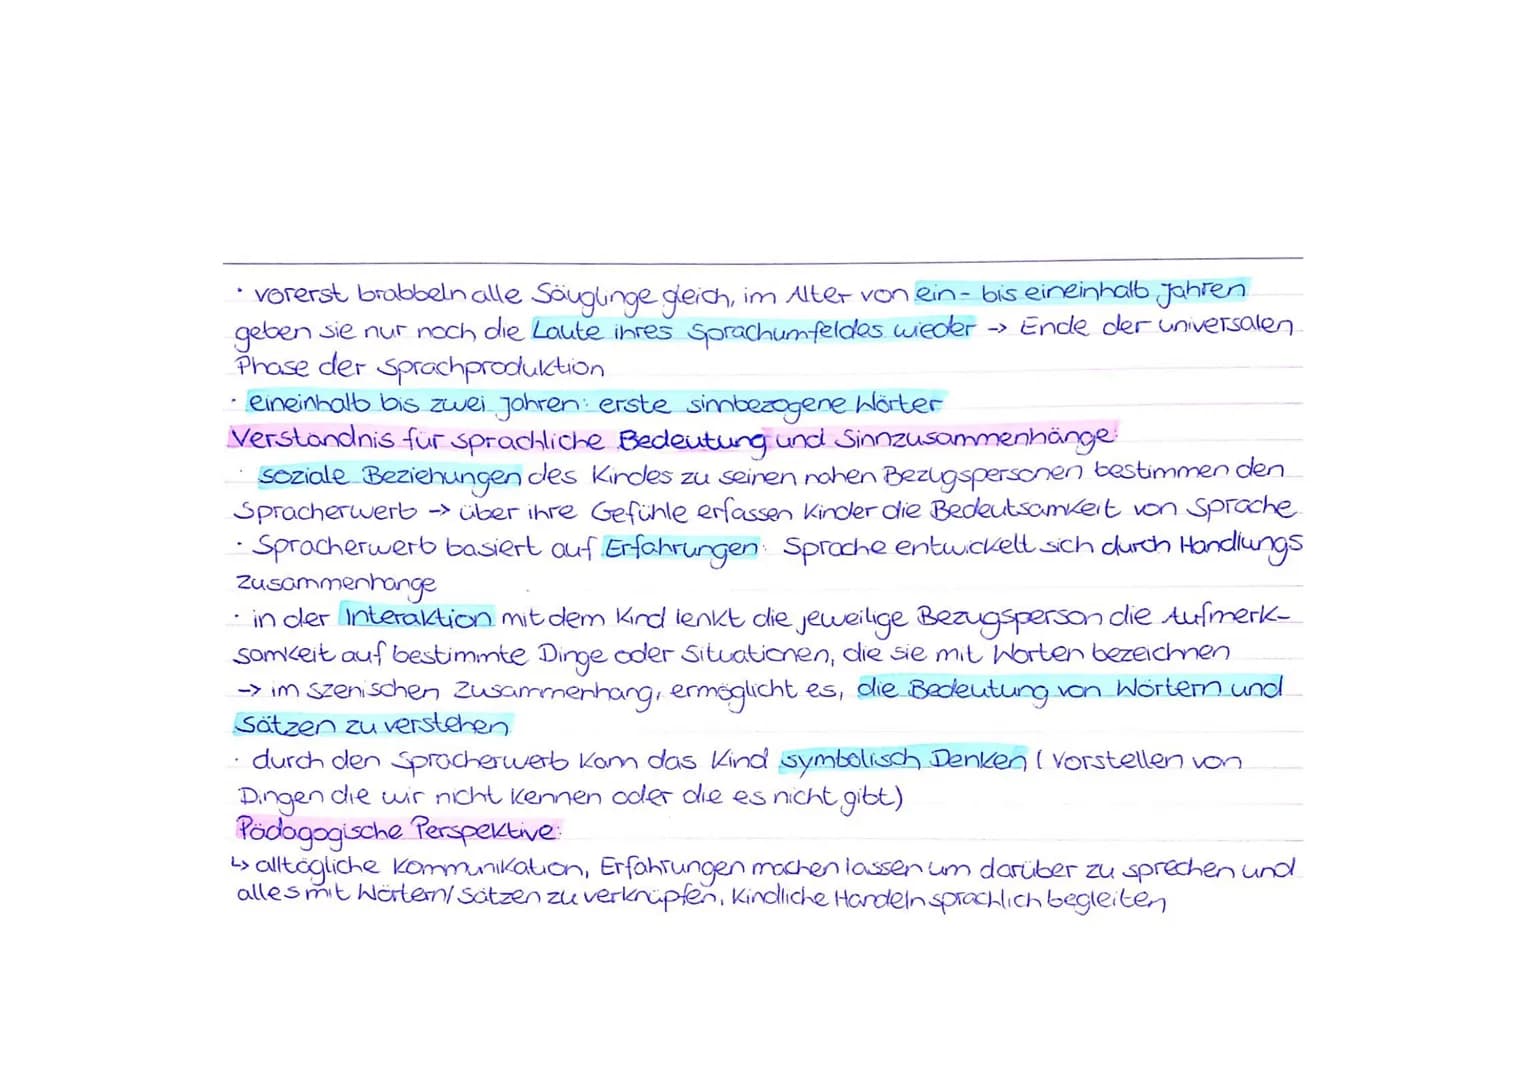 · vorerst brabbeln alle Säuglinge gleich, im Alter von ein- bis eineinhalb Jahren
geben sie nur noch die Laute ihres Sprachumfeldes wieder -> Ende der universalen
Phase der Sprachproduktion
· eineinhalb bis zwei Jahren: erste sinnbezogene Wörter
Verständnis für sprachliche Bedeutung und Sinnzusammenhänge:
· soziale Beziehungen des Kindes zu seinen nahen Bezugspersonen bestimmen den
Spracherwerb -> über ihre Gefühle erfassen Kinder die Bedeutsamkeit von Sprache
· Spracherwerb basiert auf Erfahrungen: Sprache entwickelt sich durch Handlungs
zusammenhänge
· in der Interaktion mit dem Kind lenkt die jeweilige Bezugsperson die Aufmerk-
samkeit auf bestimmte Dinge oder Situationen, die sie mit Worten bezeichnen
-> im szenischen Zusammenhang, ermöglicht es, die Bedeutung von Wörtern und
Sätzen zu verstehen
· durch den Spracherwerb kann das Kind symbolisch Denken (Vorstellen von
Dingen die wir nicht kennen oder die es nicht gibt)
Pädagogische Perspektive:
↳ alltägliche Kommunikation, Erfahrungen machen lassen um darüber zu sprechen und
alles mit Wörtern/Sätzen zu verknüpfen, Kindliche Handeln sprachlich begleiten